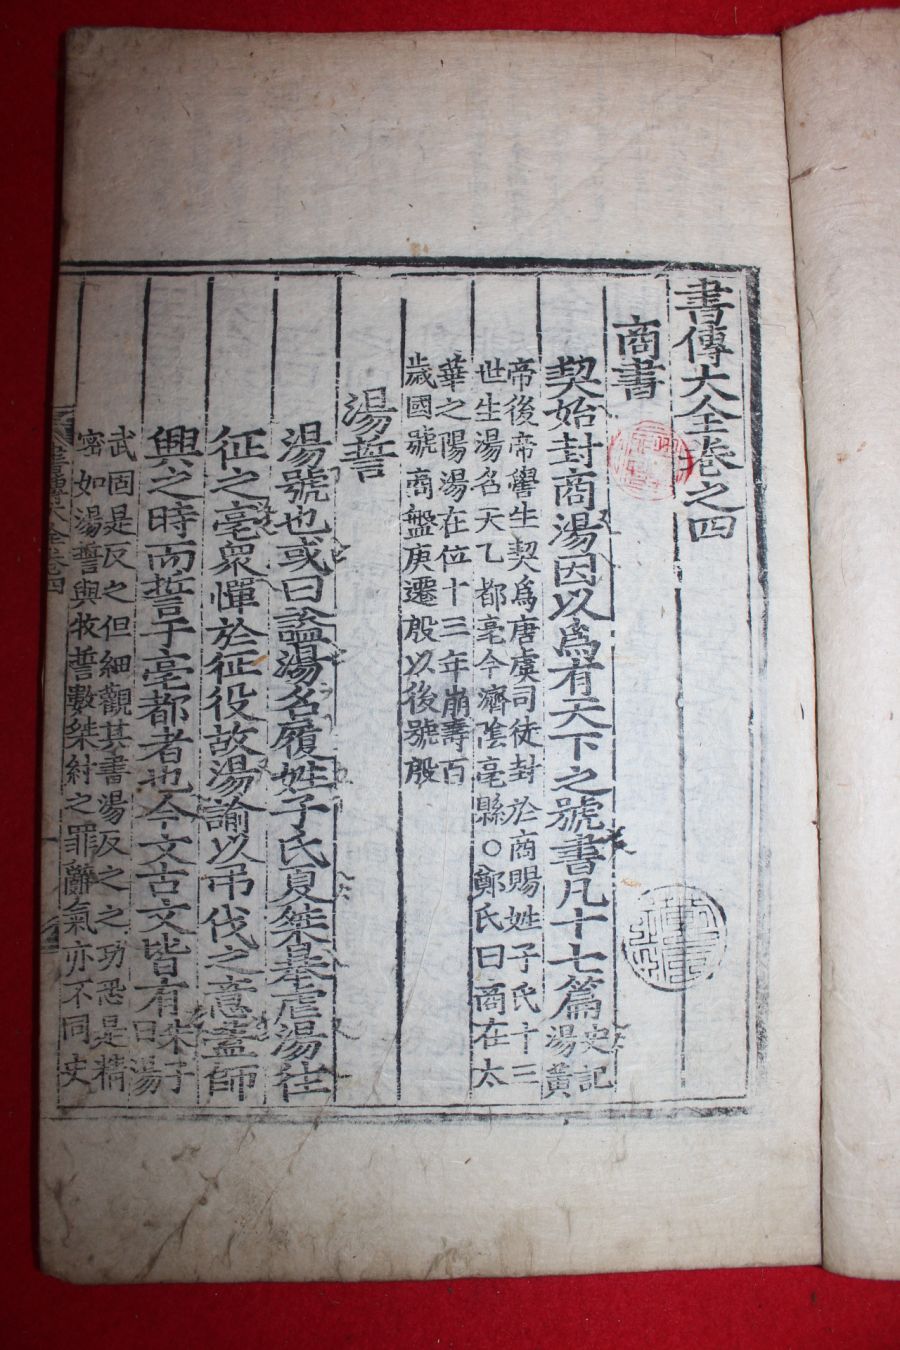 書傳大全卷之四
商書
契始封商湯因以爲有天下之號書凡十七篇
史記
湯黃
帝後帝嚳生契爲唐虞司徒封於商賜姓子氏十三
世生湯名天乙都亳今濟陰亳縣○鄭氏曰商在太
華之陽湯在位十三年崩壽百
歲國號商盤庚遷殷以後號殷
湯誓
湯號也或曰諡湯名履姓子氏夏桀暴虐湯往
征之亳衆憚於征役故湯諭以弔伐之意蓋師
興之時而誓于亳都者也今文古文皆有
朱子
曰湯
武固是反之但細觀其書湯反之之功恐是精
密如湯誓與牧誓數桀紂之罪辭氣亦不同史
書傳大全卷四